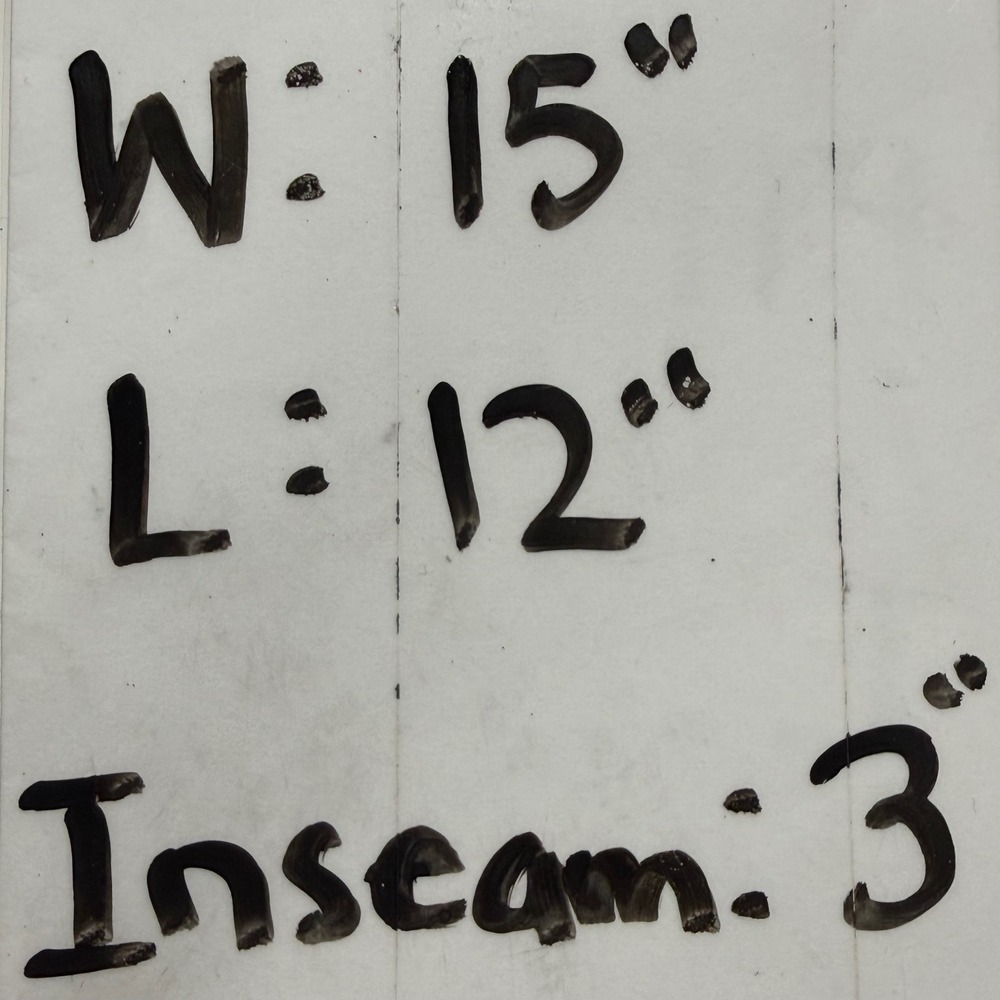 W: 15"
L: 12"
Inseam: 3"